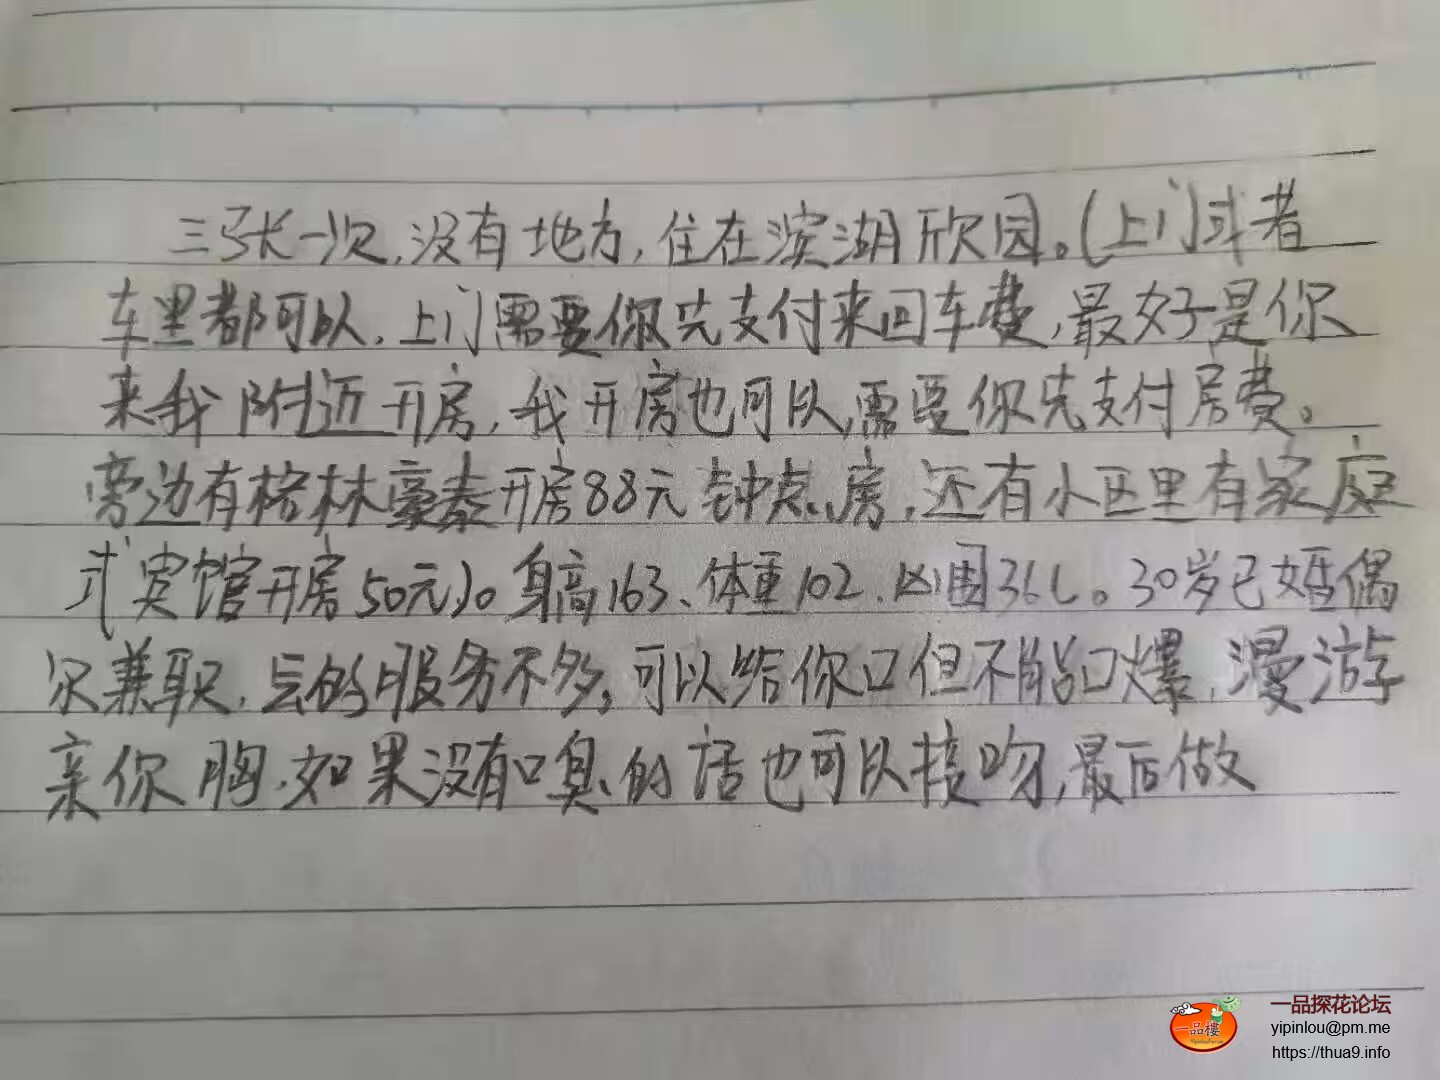 三张一次,没有地方,住在滨湖欣园。(上门或者
车里都可以,上门需要你先支付来回车费,最好是你
来我附近开房,我开房也可以,需要你先支付房费。
旁边有格林豪泰开房88元钟点房,还有小区里有家庭
式宾馆开房50元)。身高163、体重102、凶围36C。30岁已婚偶
尔兼职,会的服务不多,可以给你口但不能口爆,漫游
亲你胸,如果没有口臭的话也可以接吻,最后做
一品樓
一品探花论坛
yipinlou@pm.me
https://thua9.info